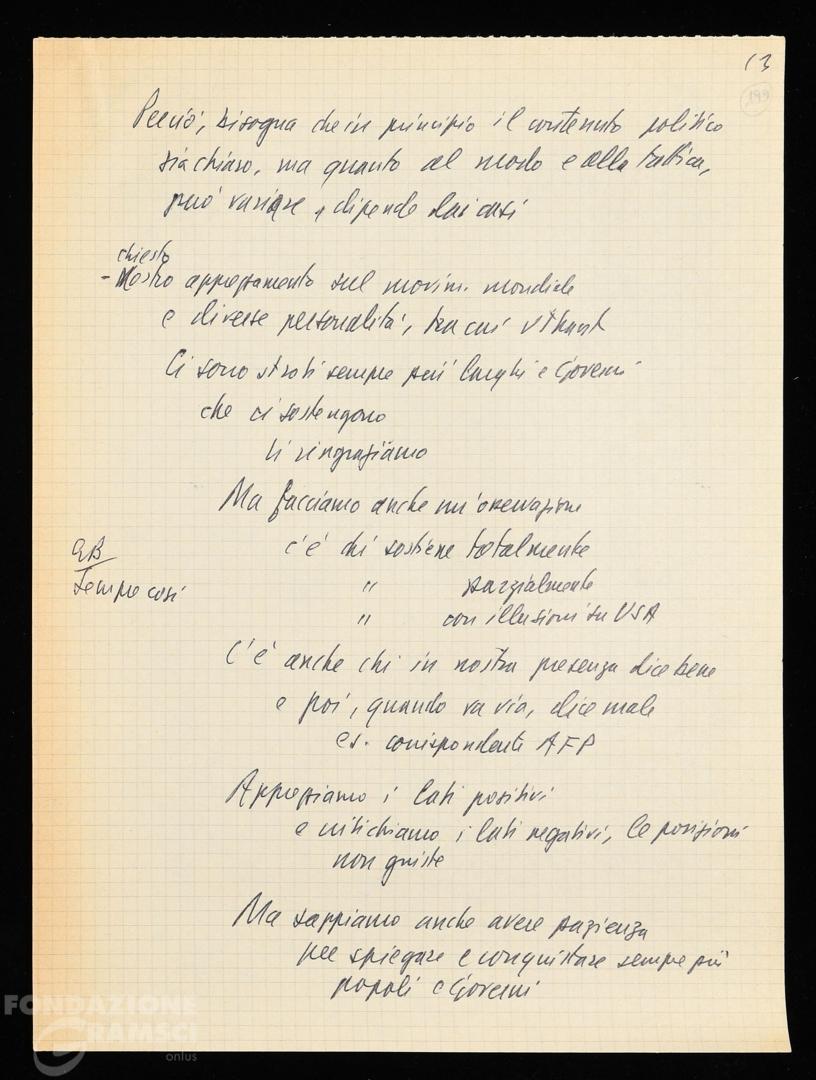 13
199
Perciò, bisogna che in principio il contenuto politico
sia chiaro, ma quanto al modo e alla tattica,
può variare, dipende dai casi
chiesto
- Nostro apprezzamento sul movim. mondiale
e diverse personalità, tra cui U Thant
Ci sono strati sempre più larghi e Governi
che ci sostengono
Li ringraziamo
Ma facciamo anche un'osservazione
c'è chi sostiene totalmente
" parzialmente
" con illusioni su USA
GB
sempre così
C'è anche chi in nostra presenza dice bene
e poi, quando va via, dice male
es. corrispondente AFP
Apprezziamo i lati positivi
e critichiamo i lati negativi, le posizioni
non giuste
Ma sappiamo anche avere pazienza
per spiegare e conquistare sempre più
popoli e Governi
FONDAZIONE
GRAMSCI
onlus